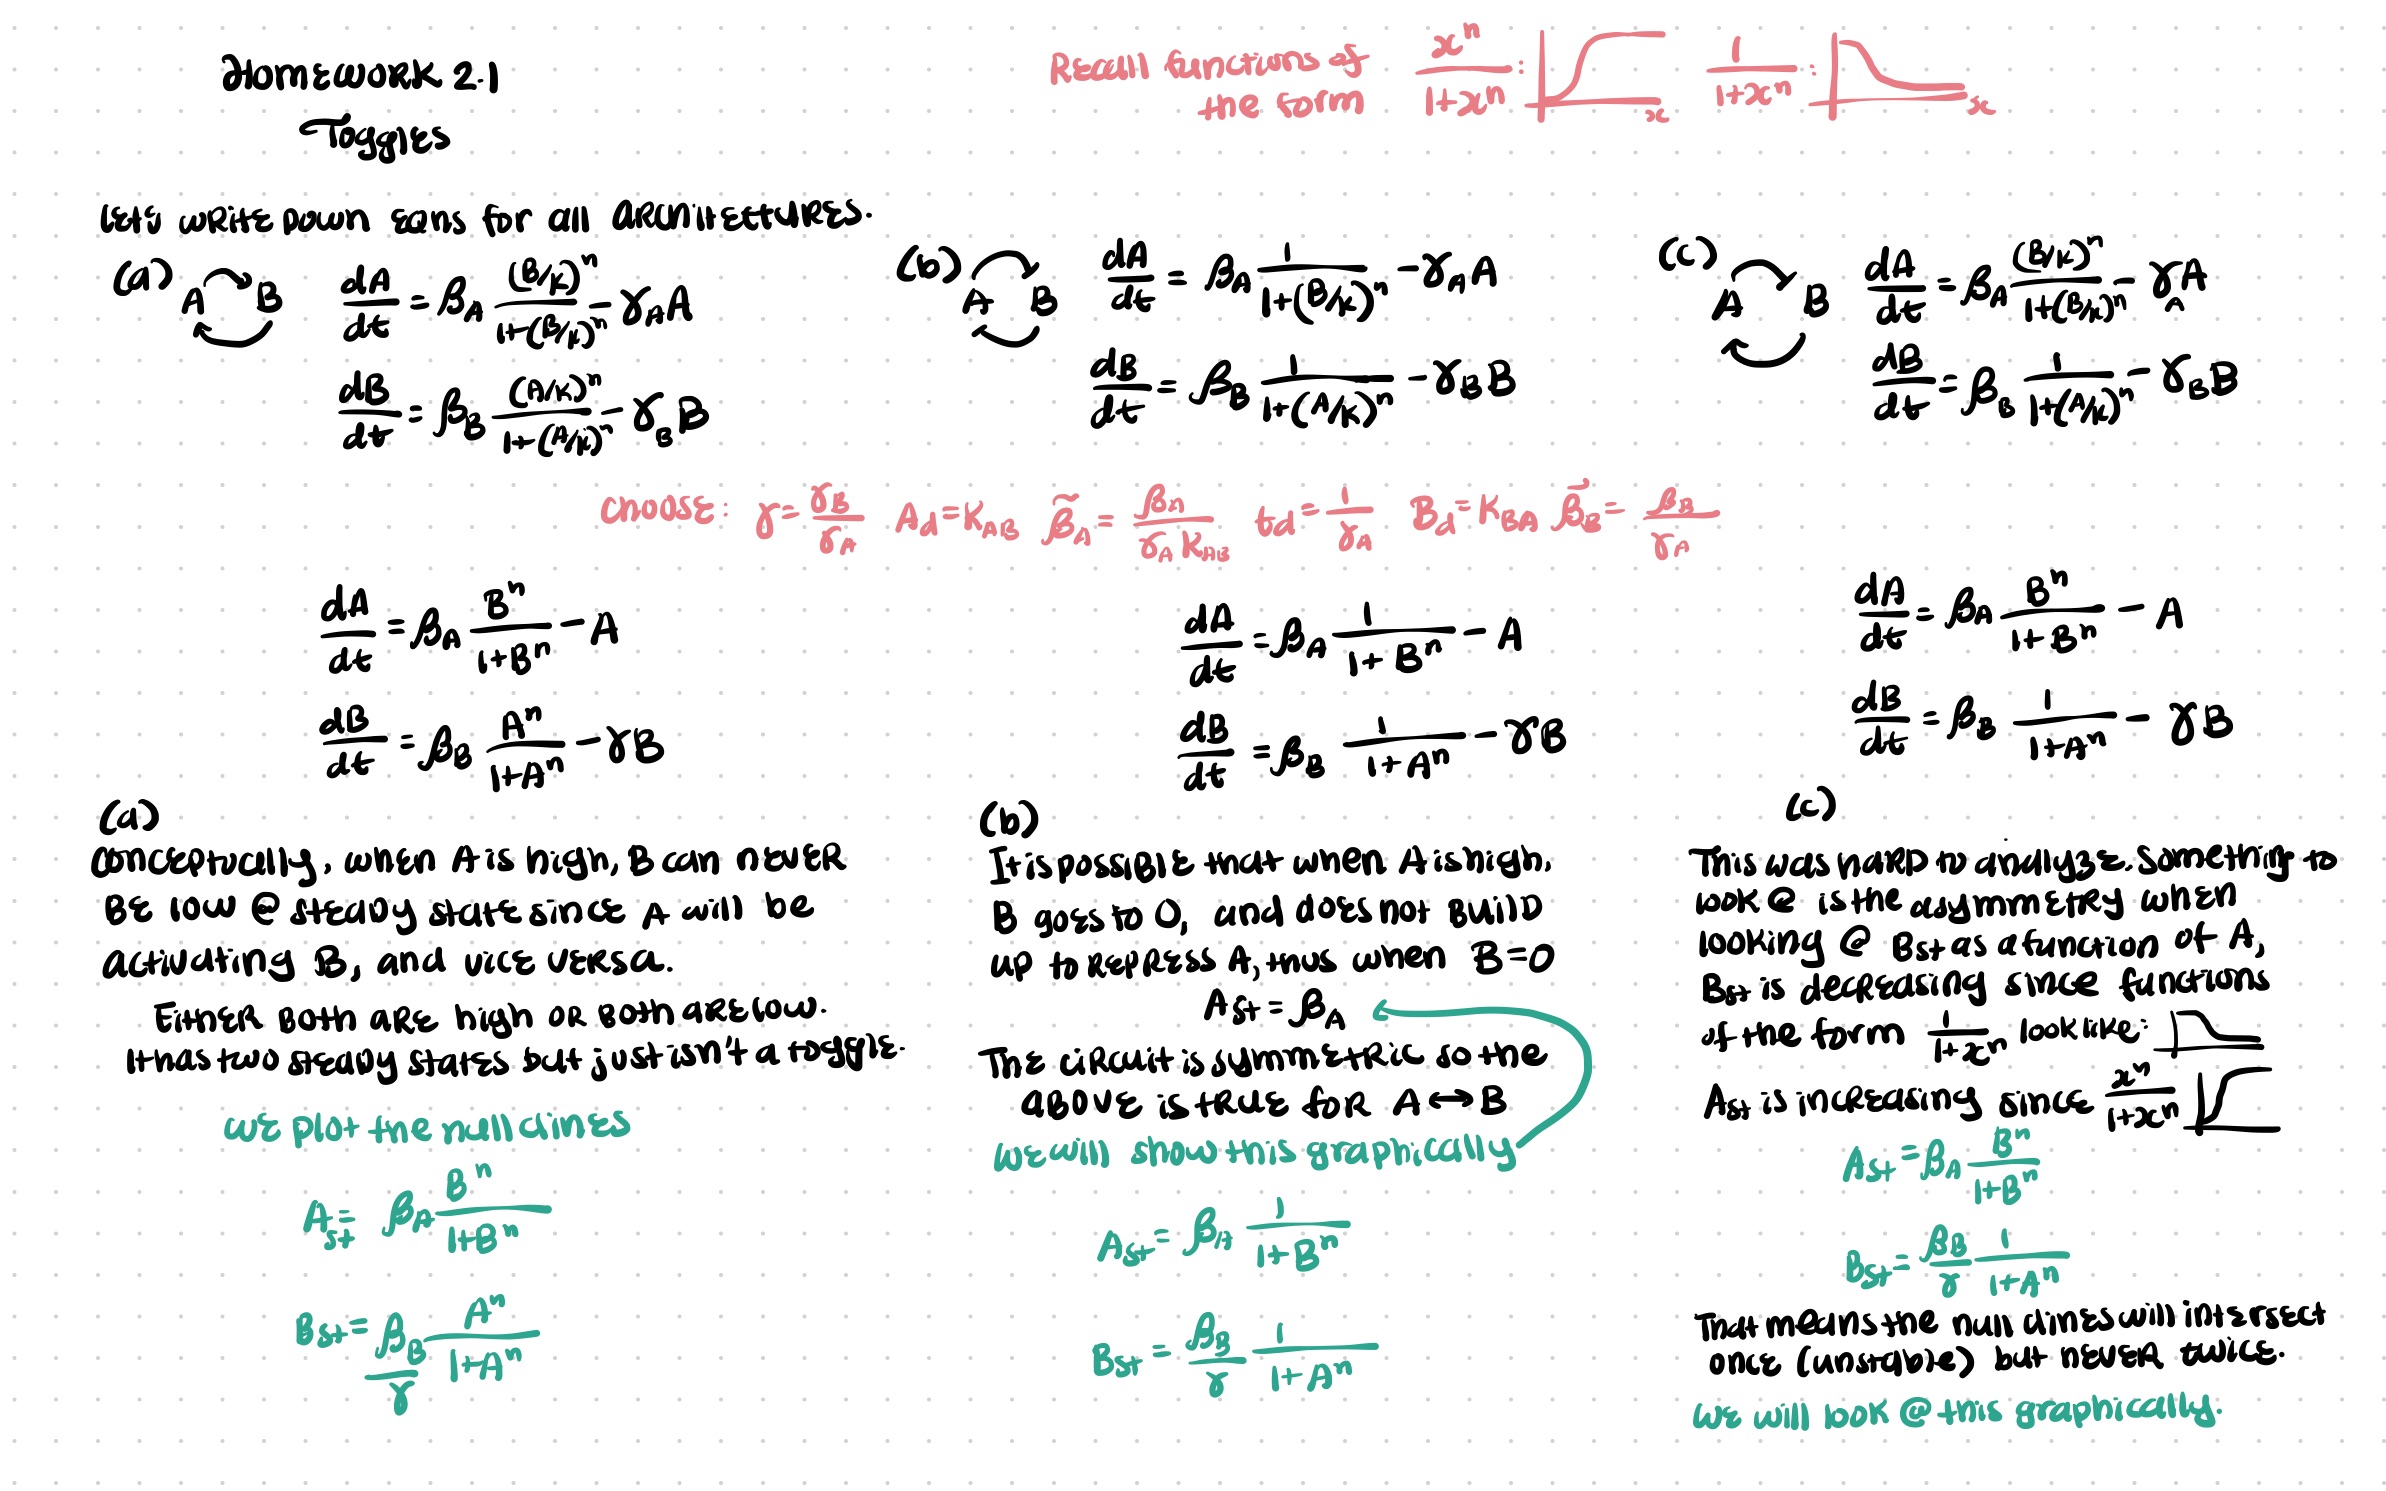 Homework 2.1
Toggles
Recall functions of the form x^n/(1+x^n): x 1/(1+x^n): x
Let's write down eqns for all architectures.
(a) A B dA/dt = β_A (B/k)^n/(1+(B/k)^n) - γ_A A
dB/dt = β_B (A/k)^n/(1+(A/k)^n) - γ_B B
(b) A B dA/dt = β_A 1/(1+(B/k)^n) - γ_A A
dB/dt = β_B 1/(1+(A/k)^n) - γ_B B
(c) A B dA/dt = β_A (B/k)^n/(1+(B/k)^n) - γ_A A
dB/dt = β_B 1/(1+(A/k)^n) - γ_B B
choose: γ = γ_B/γ_A A_d = K_AB β̃_A = β_A/(γ_A K_AB) t_d = 1/γ_A B_d = K_BA β̃_B = β_B/γ_A
dA/dt = β_A B^n/(1+B^n) - A
dB/dt = β_B A^n/(1+A^n) - γB
dA/dt = β_A 1/(1+B^n) - A
dB/dt = β_B 1/(1+A^n) - γB
dA/dt = β_A B^n/(1+B^n) - A
dB/dt = β_B 1/(1+A^n) - γB
(a)
conceptually, when A is high, B can never
be low @ steady state since A will be
activating B, and vice versa.
Either both are high or both are low.
It has two steady states but just isn't a toggle.
we plot the null clines
A_st = β_A B^n/(1+B^n)
B_st = β_B/γ A^n/(1+A^n)
(b)
It is possible that when A is high,
B goes to 0, and does not build
up to repress A, thus when B=0
A_st = β_A
The circuit is symmetric so the
above is true for A ↔ B
we will show this graphically
A_st = β_A 1/(1+B^n)
B_st = β_B/γ 1/(1+A^n)
(c)
This was hard to analyze. Something to
look @ is the asymmetry when
looking @ B_st as a function of A,
B_st is decreasing since functions
of the form 1/(1+x^n) look like:
A_st is increasing since x^n/(1+x^n)
A_st = β_A B^n/(1+B^n)
B_st = β_B/γ 1/(1+A^n)
That means the null clines will intersect
once (unstable) but never twice.
we will look @ this graphically.